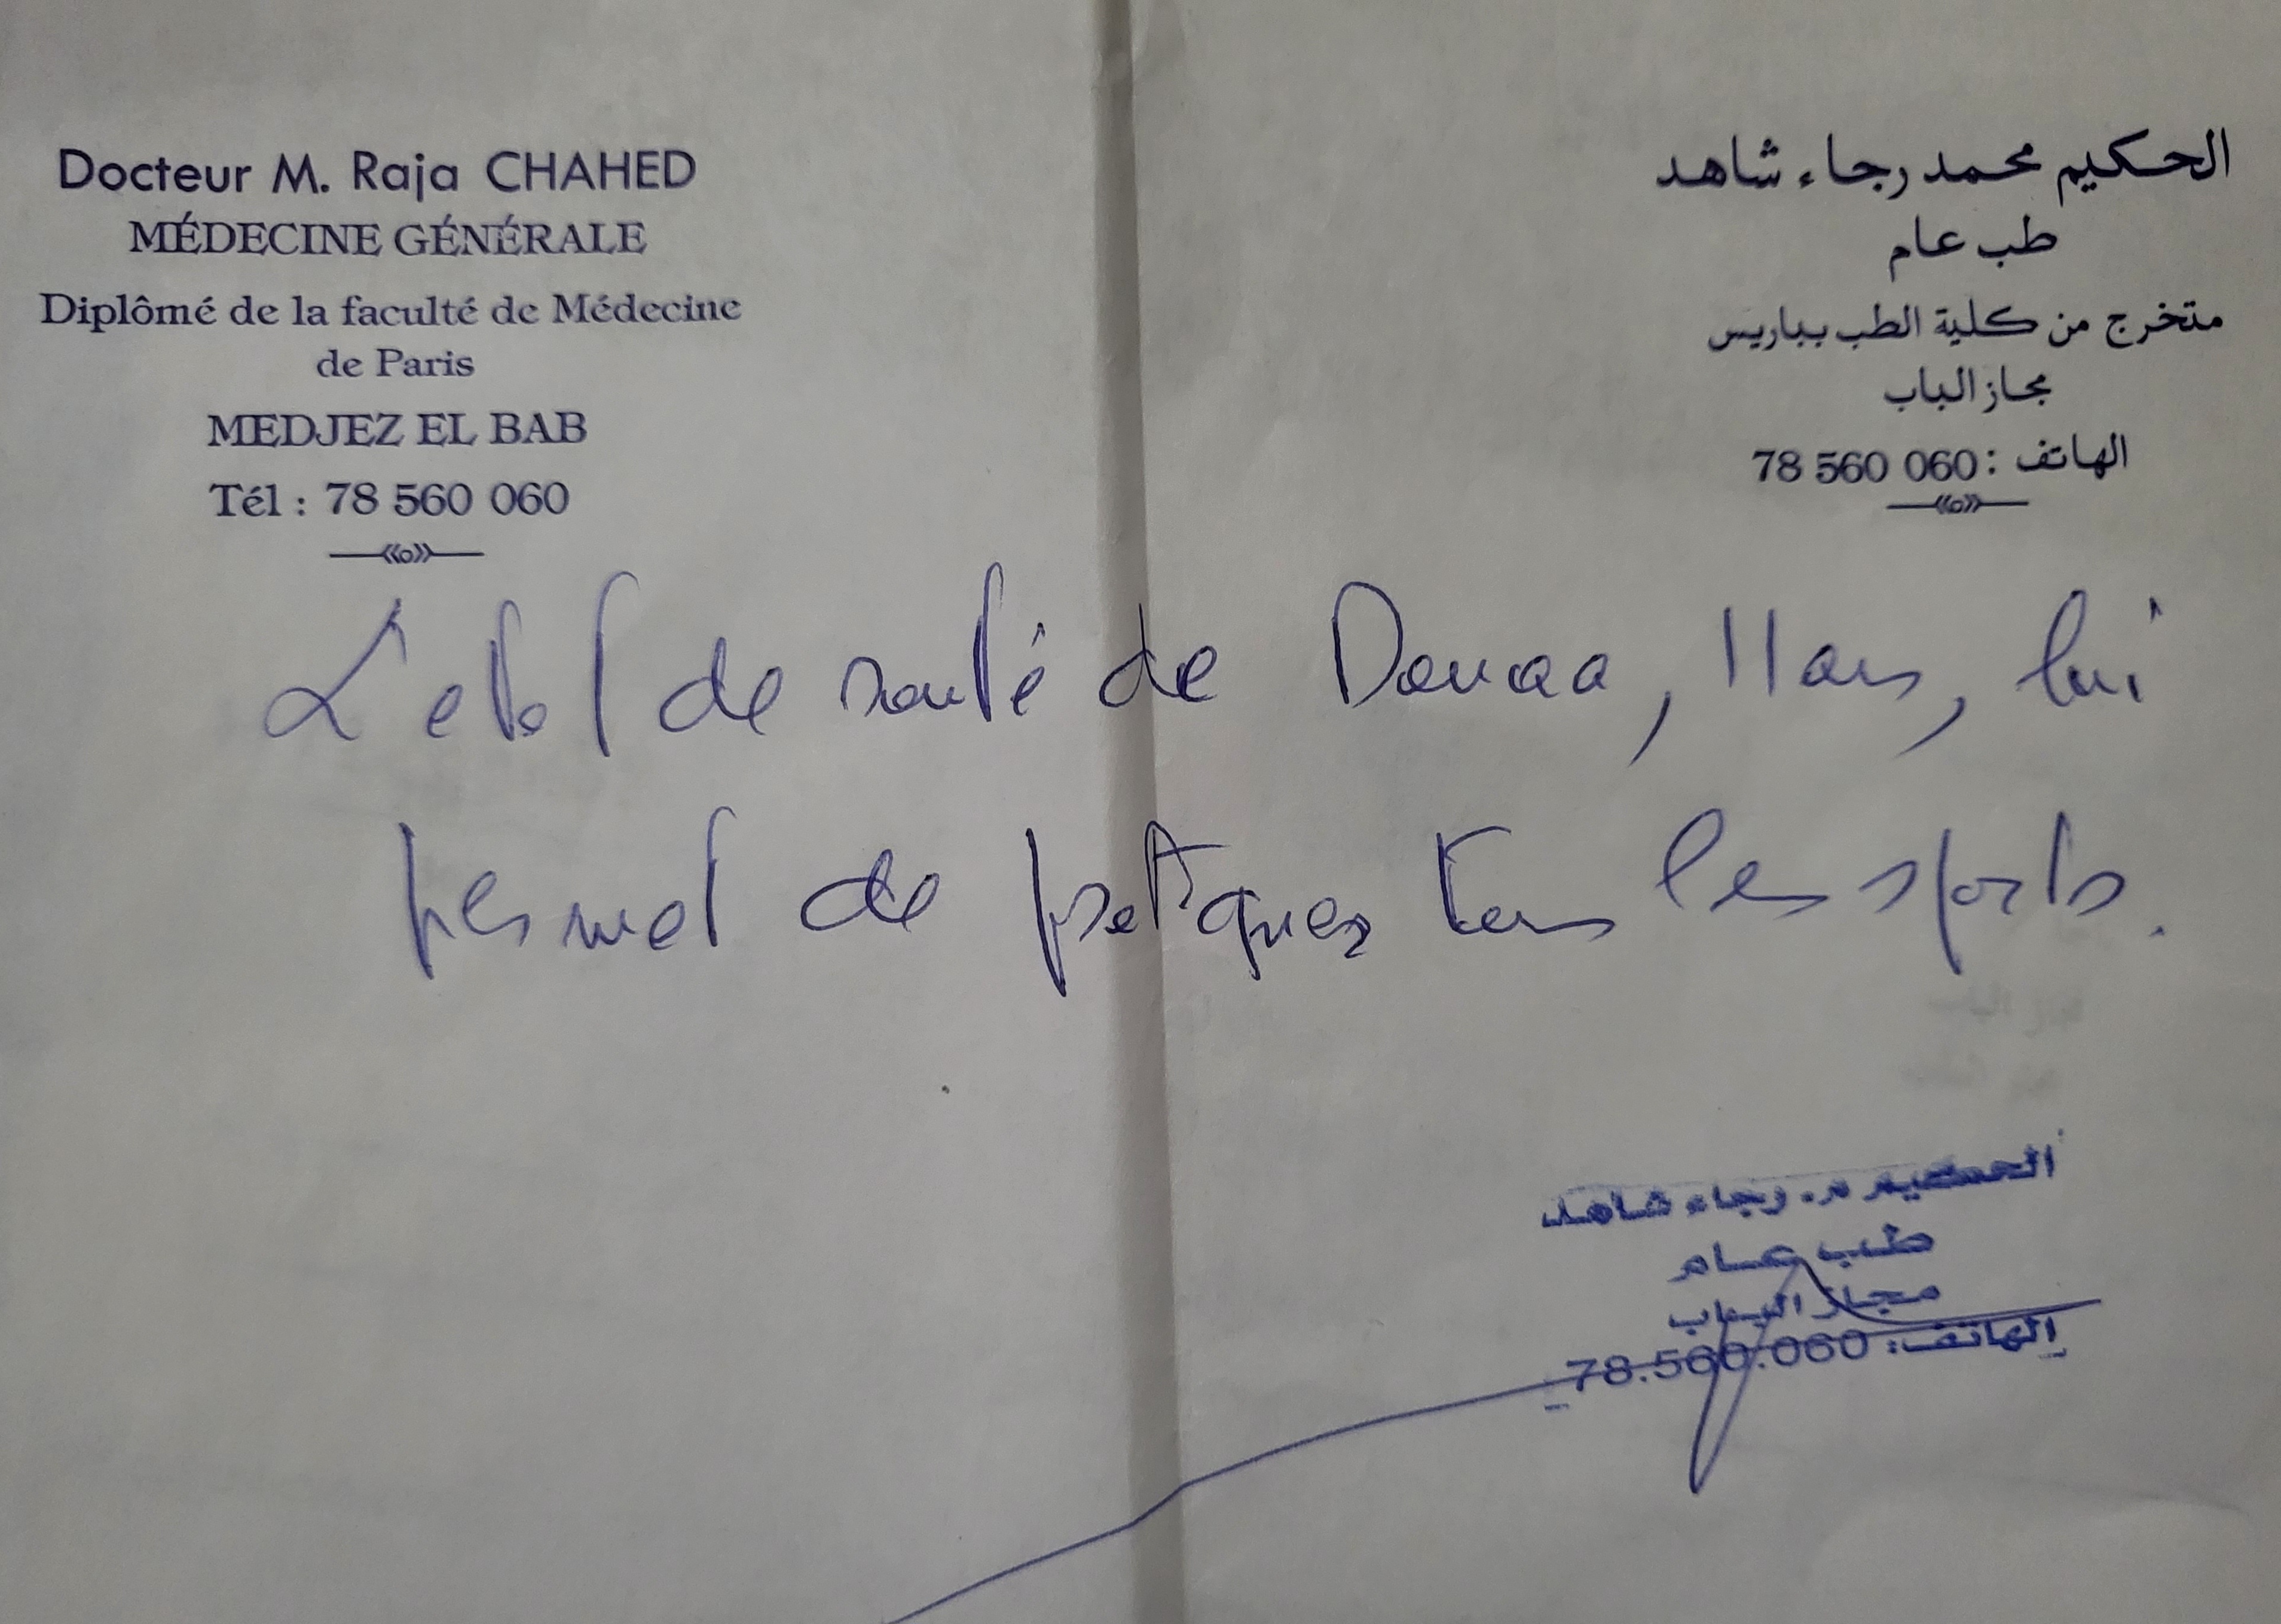 Docteur M. Raja CHAHED
MÉDECINE GÉNÉRALE
Diplômé de la faculté de Médecine
de Paris
MEDJEZ EL BAB
Tél : 78 560 060
الحكيم محمد رجاء شاهد
طب عام
متخرج من كلية الطب بباريس
مجاز الباب
الهاتف : 78 560 060
L'etat de santé de Douaa, , lui
permet de pratiquer tous les sports.
الحكيم م. رجاء شاهد
طب عام
مجاز الباب
الهاتف: 78.560.060